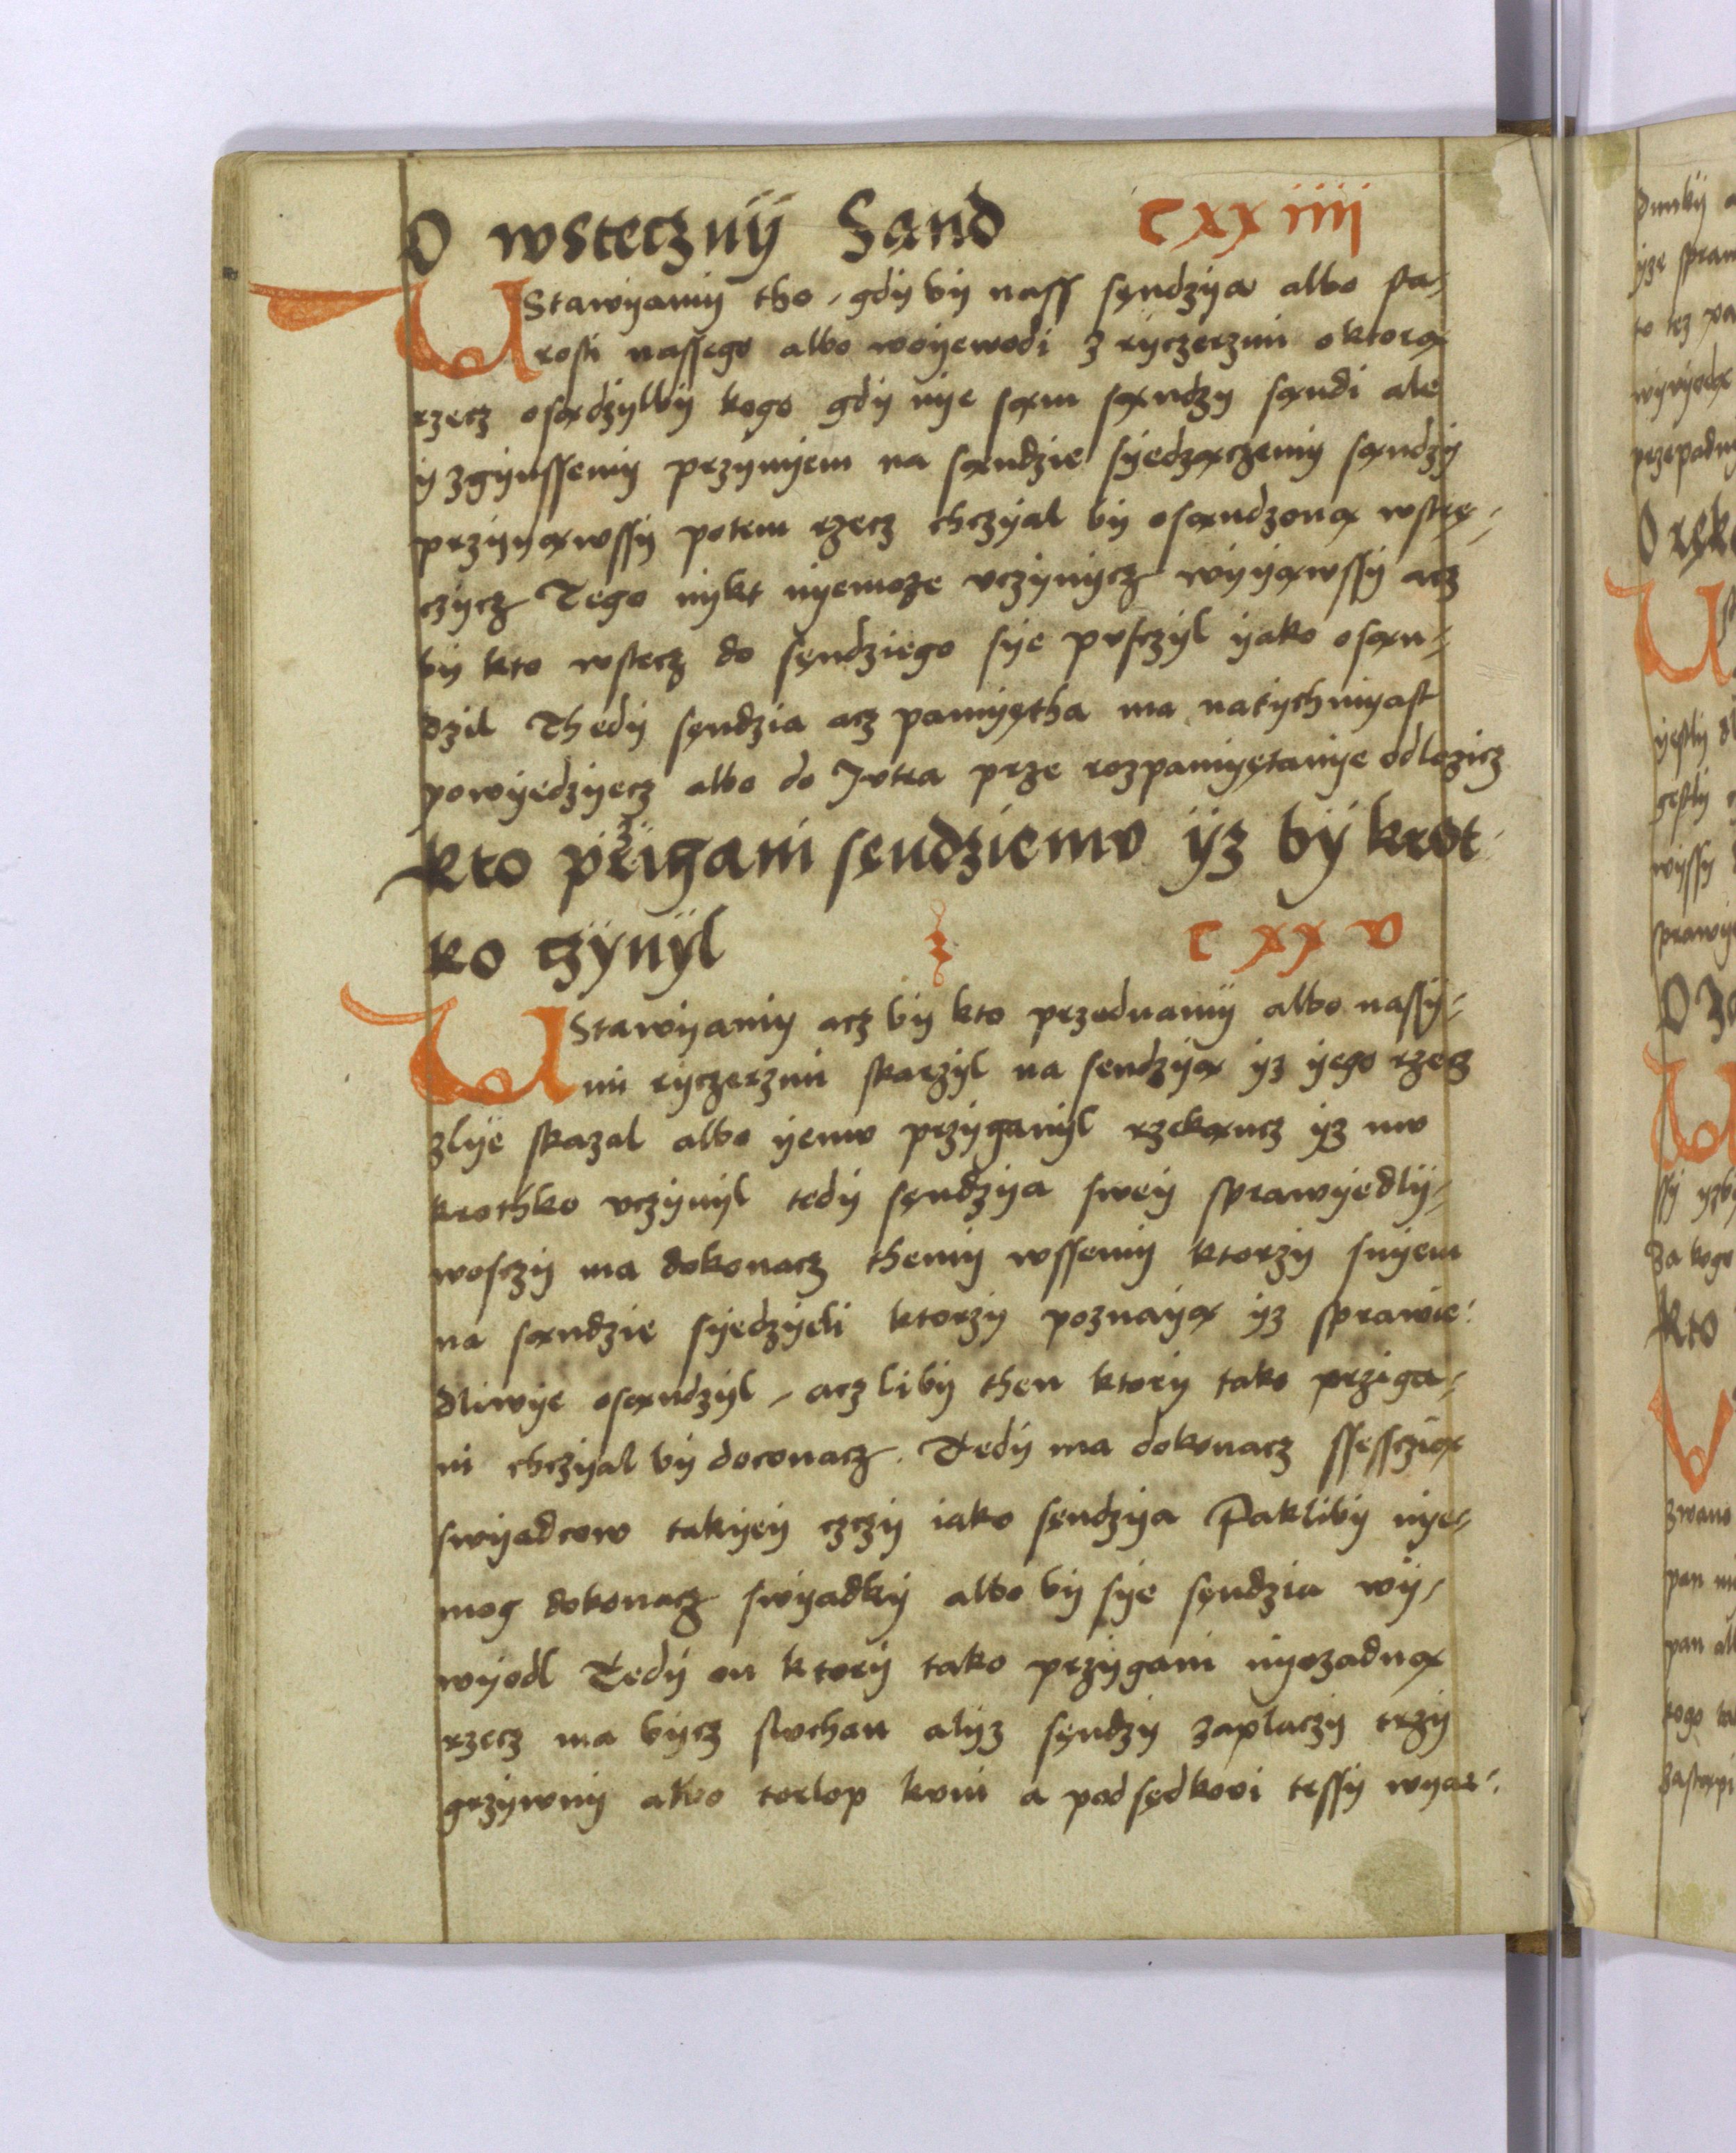 O wsteczny Sand CXXiiii
UStawyamy tho, gdy by nass sęndzya albo sta-
rosti nassego albo woyewodi z ryczerzmi o ktorą
rzecz osądzylby kogo gdy nye sąm sąndzy sąndi ale
y zgynssemy przynyem na sąndzie syedzączemy sąndzy
przyyąwssy potem rzecz chczyal by osąndzoną wstę-
czycz Tego nykt nyemoze vczynycz wyyąwssy acz
by kto wstecz do sęndziego sye pvsczyl yako osąn-
dzil Thedy sęndzia acz pamyętha ma natychmyast
powyedzyecz albo do Jvtra prze rozpamyętanye odlozicz
kto przigani sęndziemv yz by krot
ko czynyl CXXv
UStawyamy acz by kto przednamy albo nassy-
mi ryczerzmi skarzyl na sendzyą yz yego rzecz
zlye skazal albo yemv przyganyl rzekąncz yz mv
krothko vczynyl tedy sęndzya swey sprawyedly-
wosczy ma dokonacz themy wssemy ktorzy snyem
na sąndzie syedzyeli ktorzy poznayą yz sprawie-
dliwye osąndzyl, aczliby then ktory tako przyga-
ni chczyal by doconacz. Tedy ma dokonacz ssesczią
swyadcow takyey czczy iako sęndzya Pakliby nye-
mog dokonacz swyadky albo by sye sęndzia wy-
wyodl Tedy on ktory tako przygani nyozadną
rzecz ma bycz slvchan alyz sęndzy zaplaczy trzy
grzywny albo torlop kvni a podsędkovi tessy wyar-